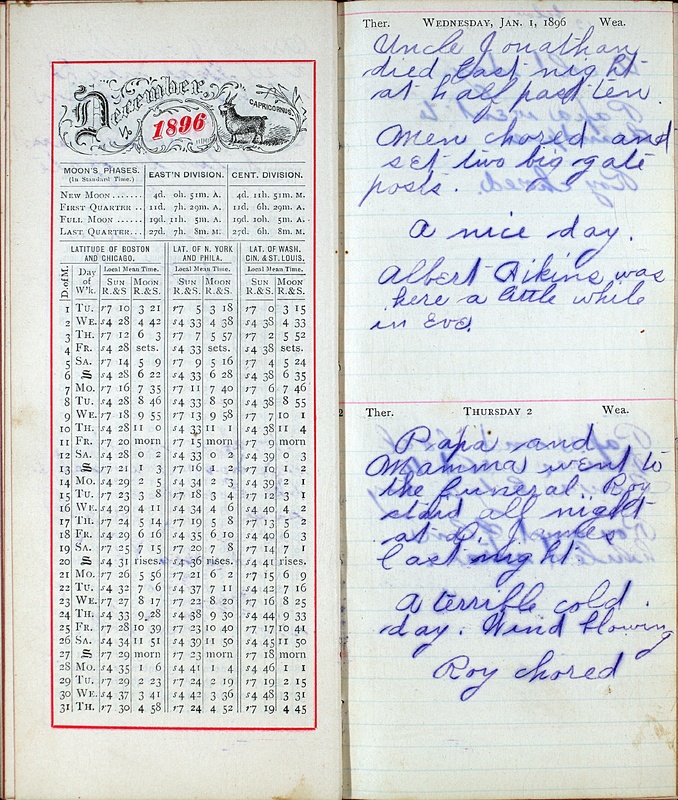 December.
1896
CAPRICORNUS.
MOON'S PHASES. (In Standard Time.) EAST'N DIVISION. CENT. DIVISION.
NEW MOON....... 4d. 0h. 51m. A. 4d. 11h. 51m. M.
FIRST QUARTER.. 11d. 7h. 29m. A. 11d. 6h. 29m. A.
FULL MOON...... 19d. 11h. 5m. A. 19d. 10h. 5m. A.
LAST QUARTER... 27d. 7h. 8m. M. 27d. 6h. 8m. M.
D. of M. Day of W'k. LATITUDE OF BOSTON AND CHICAGO. LAT. OF N. YORK AND PHILA. LAT. OF WASH. CIN. & ST. LOUIS.
Local Mean Time. Local Mean Time. Local Mean Time.
SUN R.&S. MOON R.&S. SUN R.&S. MOON R.&S. SUN R.&S. MOON R.&S.
1 TU. r7 10 3 21 r7 5 3 18 r7 0 3 15
2 WE. s4 28 4 42 s4 33 4 38 s4 38 4 33
3 TH. r7 12 6 3 r7 7 5 57 r7 2 5 52
4 FR. s4 28 sets. s4 33 sets. s4 38 sets.
5 SA. r7 14 5 9 r7 9 5 16 r7 4 5 24
6 S s4 28 6 22 s4 33 6 28 s4 38 6 35
7 MO. r7 16 7 35 r7 11 7 40 r7 6 7 46
8 TU. s4 28 8 46 s4 33 8 50 s4 38 8 55
9 WE. r7 18 9 55 r7 13 9 58 r7 7 10 1
10 TH. s4 28 11 0 s4 33 11 1 s4 38 11 4
11 FR. r7 20 morn r7 15 morn r7 9 morn
12 SA. s4 28 0 2 s4 33 0 2 s4 39 0 3
13 S r7 21 1 3 r7 16 1 2 r7 10 1 2
14 MO. s4 29 2 5 s4 34 2 3 s4 39 2 1
15 TU. r7 23 3 8 r7 18 3 4 r7 12 3 1
16 WE. s4 29 4 11 s4 34 4 6 s4 40 4 2
17 TH. r7 24 5 14 r7 19 5 8 r7 13 5 2
18 FR. s4 29 6 16 s4 35 6 10 s4 40 6 3
19 SA. r7 25 7 15 r7 20 7 8 r7 14 7 1
20 S s4 31 rises. s4 36 rises. s4 41 rises.
21 MO. r7 26 5 56 r7 21 6 2 r7 15 6 9
22 TU. s4 32 7 6 s4 37 7 11 s4 42 7 16
23 WE. r7 27 8 17 r7 22 8 20 r7 16 8 25
24 TH. s4 33 9 28 s4 38 9 30 s4 44 9 33
25 FR. r7 28 10 39 r7 23 10 40 r7 17 10 41
26 SA. s4 34 11 51 s4 39 11 50 s4 45 11 50
27 S r7 29 morn r7 23 morn r7 18 morn
28 MO. s4 35 1 6 s4 41 1 4 s4 46 1 1
29 TU. r7 29 2 23 r7 24 2 19 r7 19 2 15
30 WE. s4 37 3 41 s4 42 3 36 s4 48 3 31
31 TH. r7 30 4 58 r7 24 4 52 r7 19 4 45
Ther. WEDNESDAY, JAN. 1, 1896 Wea.
Uncle Jonathan
died last night
at half past ten.
Men chored and
set two big gate
posts.
A nice day.
Albert Aikins was
here a little while
in Eve.
Ther. THURSDAY 2 Wea.
Papa and
Mamma went to
the funeral. Roy
staid all night
at James
last night.
A terrible cold
day. Wind blowing
Roy chored